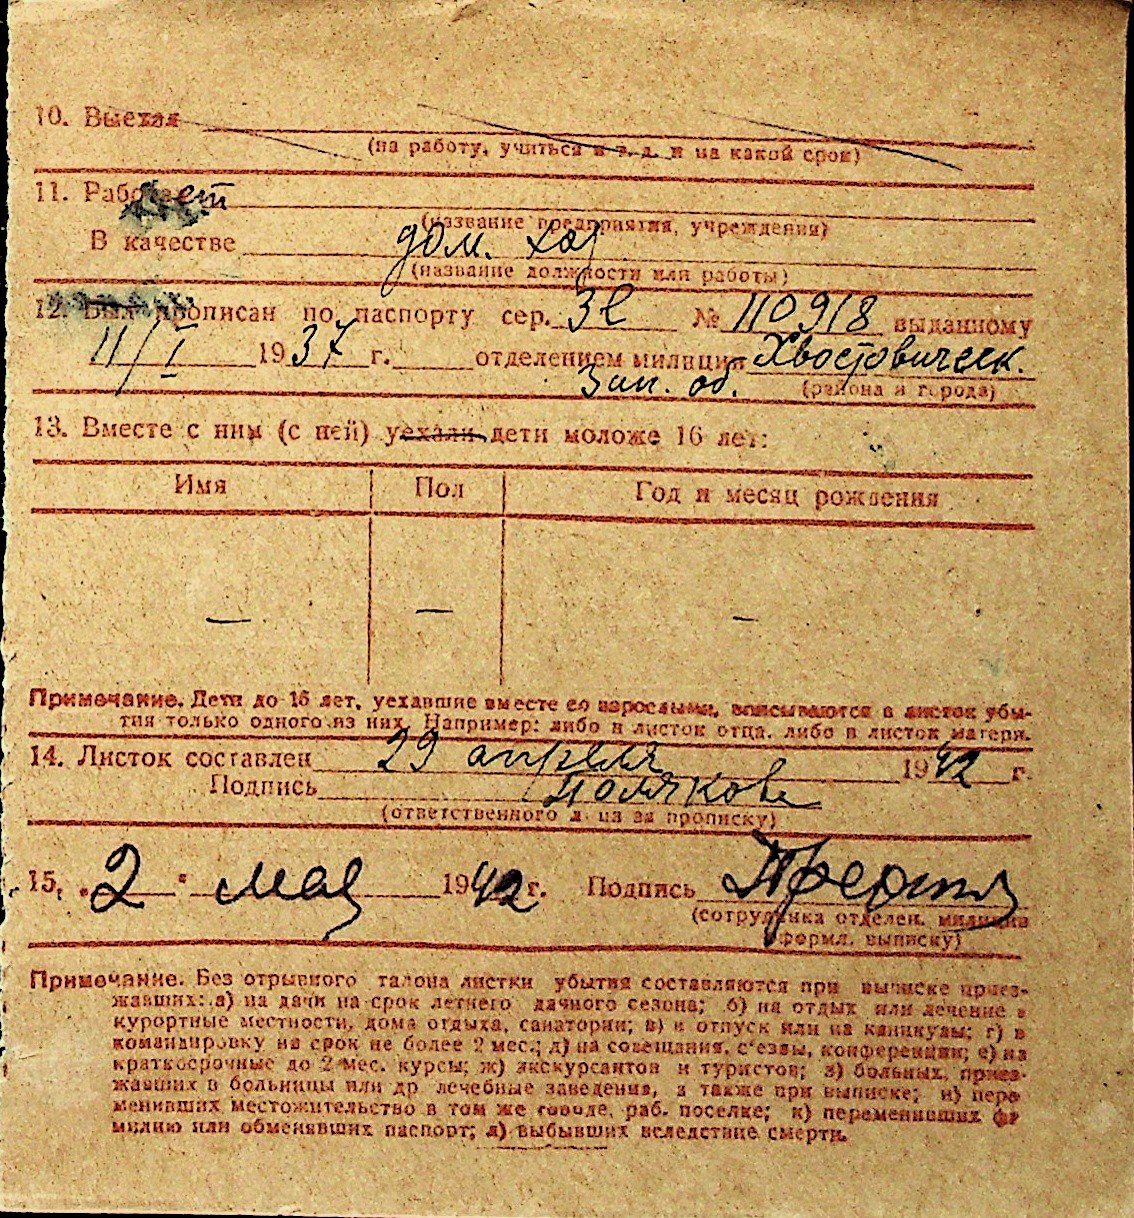 10. Выехал
(на работу, учиться и т. д. и на какой срок)
11. Работает
(название предприятия, учреждения)
В качестве дом. хоз
(название должности или работы)
12. Был прописан по паспорту сер. ЗЕ № 110918 выданному
11/I 1937 г. отделением милиции Хвостовическ.
Зап. об. (района и города)
13. Вместе с ним (с ней) уехали дети моложе 16 лет:
Имя Пол Год и месяц рождения
— — —
Примечание. Дети до 16 лет, уехавшие вместе со взрослыми, вписываются в листок убы-
тия только одного из них. Например: либо в листок отца, либо в листок матери.
14. Листок составлен 29 апреля 1942 г.
Подпись Полякова
(ответственного л. из за прописку)
15. „2" мая 1942 г. Подпись
(сотрудника отделен. милиции
оформл. выписку)
Примечание. Без отрывного талона листки убытия составляются при выписке приез-
жавших: а) на дачи на срок летнего дачного сезона; б) на отдых или лечение в
курортные местности, дома отдыха, санатории; в) в отпуск или на каникулы; г) в
командировку на срок не более 2 мес.; д) на совещания, с'езды, конференции; е) на
краткосрочные до 2 мес. курсы; ж) экскурсантов и туристов; з) больных, приез-
жавших в больницы или др лечебные заведения, а также при выписке; и) пере
менивших местожительство в том же городе, раб. поселке; к) переменивших фа
милию или обменявших паспорт; л) выбывших вследствие смерти.